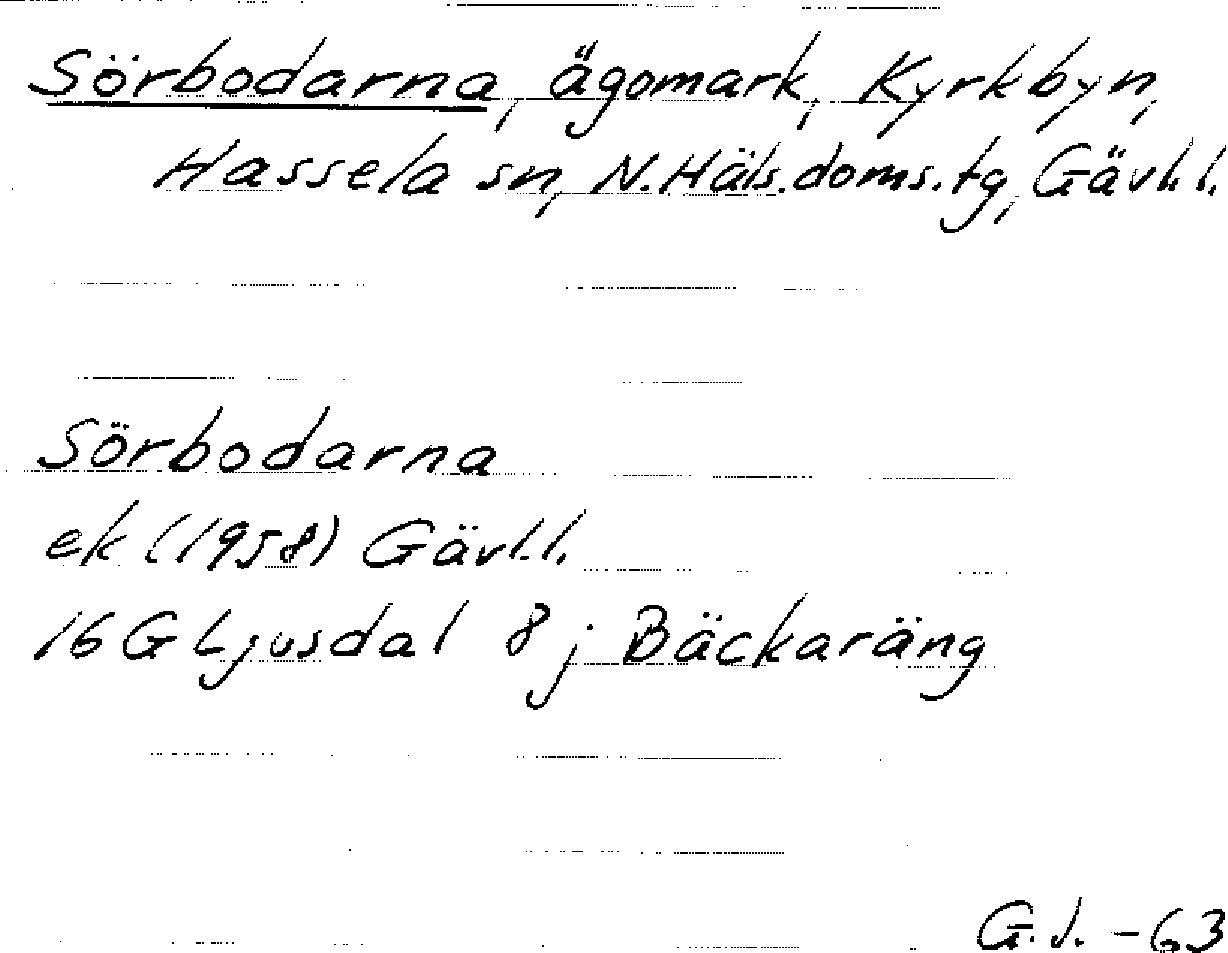 Sörbodarna, ägomark, Kyrkbyn,
Hassela sn, N.Häls.doms.tg, Gävl.l.
Sörbodarna
ek (1958) Gävl.l.
16 G Ljusdal 8 j Bäckaräng
G.J. -63